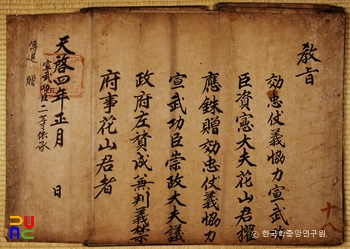 敎旨
効忠仗義協力宣武
臣資憲大夫花山君權
應銖贈効忠仗義恊力
宣武功臣崇政大夫議
政府左贊成兼判義禁
府事花山君者
天啓四年正月 日
宣武功臣二等
贈
© 한국학중앙연구원